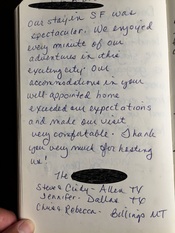 Our stay in SF was
spectacular. We enjoyed
every minute of our
adventures in this
exciting city. Our
accommodations in your
well-appointed home
exceeded our expectations
and made our visit
very comfortable. Thank
you very much for hosting
us!
The
Steve Cindy - Allen TX
Jennifer - Dallas TX
Chris Rebecca - Billings MT